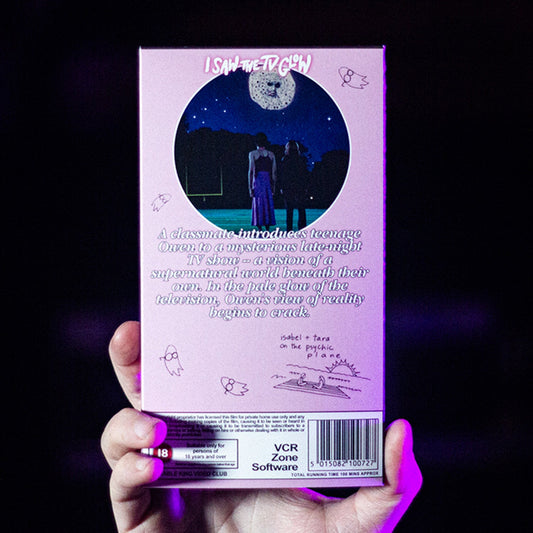 I SAW THE TV GLOW
A classmate introduces teenage
Owen to a mysterious late-night
TV show – a vision of a
supernatural world beneath their
own. In the pale glow of the
television, Owen's view of reality
begins to crack.
isabel + tara
on the psychic
plane
proprietor has licensed this film for private home use only and any
making copies of the film, causing it to be seen or heard in
causing it to be transmitted to subscribers to a
or otherwise dealing with it in whole or
18
Suitable only for
persons of
18 years and over
VCR
Zone
Software
5 015082 100727
VIDEO CLUB
TOTAL RUNNING TIME 100 MINS APPROX